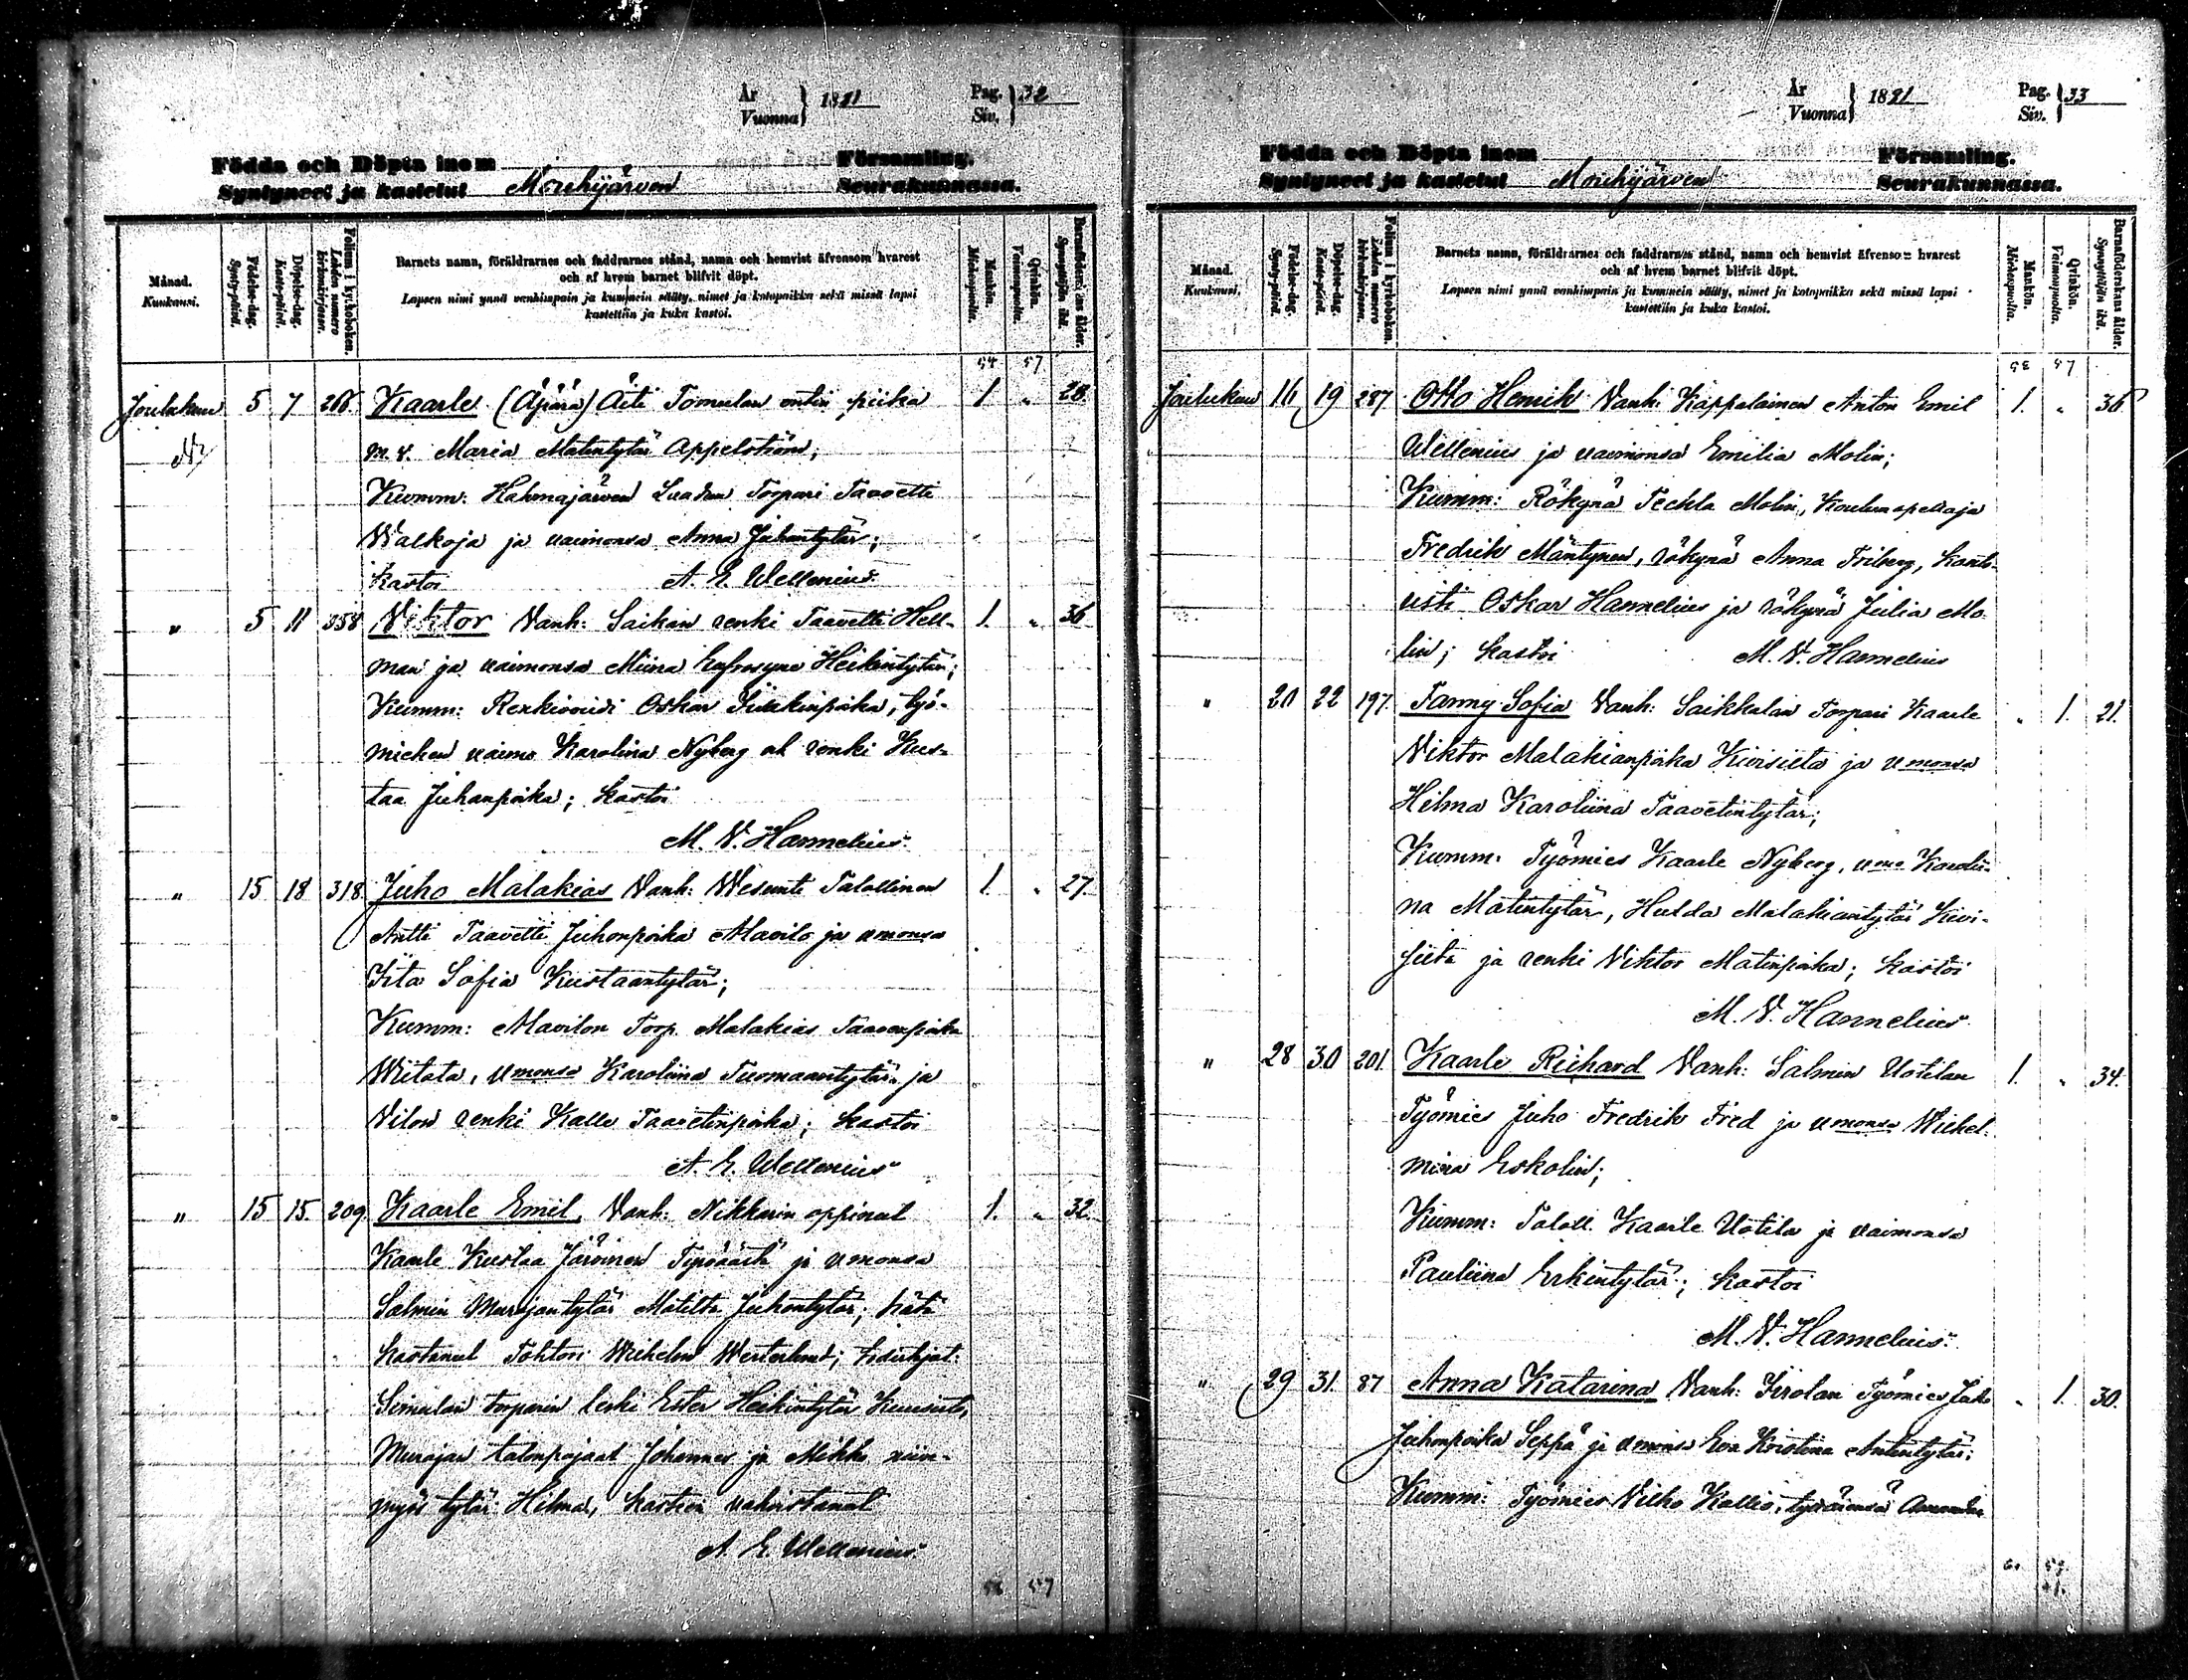 År
Vuonna } 1891
Pag.
Siv. } 32
Födda och Döpta inom Församling.
Syntyneet ja kastetut Mouhijärven Seurakunnassa.
Månad.
Kuukausi.
Födelse-dag.
Syntypäivä.
Döpelse-dag.
Kastepäivä.
Folium i kyrkoboken.
Lehden numero kirkonkirjassa.
Barnets namn, föräldrarnes och faddrarnes stånd, namn och hemvist äfvensom hvarest
och af hvem barnet blifvit döpt.
Lapsen nimi ynnä vanhimpain ja kummein sääty, nimet ja kotopaikka sekä missä lapsi
kastettiin ja kuka kastoi.
Mankön.
Miehenpuolia.
Qvinkön.
Vaimonpuolia.
Barnaföderskans ålder.
Synnyttäjän ikä.
54 57
Joulukuu 5 7 266 Kaarle (Äpärä) Äiti Tomulan entin. piika 1. „ 28.
m. v. Maria Matintytär Appelström;
Kumm: Hahmajärven Torpari Taavetti
Walkoja ja vaimonsa Anna Juhantytär;
kastoi A. E. Wellenius.
„ 5 11 358 Viktor Vanh: Saikan renki Taavetti Hell- 1. „ 36
man ja vaimonsa Miina Eufrosyne Heikintytär;
Kumm: Renkivouti Oskar Iisakinpoika, työ-
miehen vaimo Karolina Nyberg ak renki Kus-
taa Juhanpoika; kastoi
M. V. Hannelius.
„ 15 18 318. Juho Malakias Vanh: Wesunti Talollinen 1. „ 27.
Antti Taavetti Juhonpoika Mavilo ja vmonsa
Iita Sofia Kustaantytär;
Kumm: Mavilon Torp. Malakias Taavenpoika
Wiitata, vmonsa Karoliina Tuomaantytär ja
Vilon renki Kalle Taavetinpoika; kastoi
A. E. Wellenius
„ 15 15 209. Kaarle Emil, Vanh: Nikkarin oppinut 1. „ 32.
Kaarle Kustaa Järvinen ja vmonsa
Salmin Murajantytär Matilta Juhontytär; hätä
kastanut Tohtori Wilhelm Westerlund;
Simulan torparin leski Ester Heikintytär
Murajan talonpojaat Johannes ja Mikko
myös tytär Hilma, kasteen vahvistanut
A. E. Wellenius.
57
År
Vuonna } 1891
Pag.
Siv. } 33
Födda och Döpta inom Församling.
Syntyneet ja kastetut Mouhijärven Seurakunnassa.
Månad.
Kuukausi.
Födelse-dag.
Syntypäivä.
Döpelse-dag.
Kastepäivä.
Folium i kyrkoboken.
Lehden numero kirkonkirjassa.
Barnets namn, föräldrarnes och faddrarnes stånd, namn och hemvist äfvensom hvarest
och af hvem barnet blifvit döpt.
Lapsen nimi ynnä vanhimpain ja kummein sääty, nimet ja kotopaikka sekä missä lapsi
kastettiin ja kuka kastoi.
Mankön.
Miehenpuolia.
Qvinkön.
Vaimonpuolia.
Barnaföderskans ålder.
Synnyttäjän ikä.
57
Joulukuu 16 19 287 Otto Henrik Vanh: Kappalainen Anton Emil 1. „ 36
Wellenius ja vaimonsa Emilia Molin;
Kumm: Rökynä Techla Molin, Koulunopettaja
Fredrik Mäntynen, rökynä Anna Friberg, kant-
risti Oskar Hannelius ja rökynä Julia Mo-
lin; kastoi M. V. Hannelius
„ 20 22 197. Fanny Sofia Vanh: Saikkalan Torpari Kaarle „ 1. 21.
Viktor Malakianpoika Kivisiita ja vmonsa
Hilma Karoliina Taavetintytär;
Kumm: Työmies Kaarle Nyberg, vmo Karolii-
na Matintytär, Hulda Malakiantytär Kivi-
siita ja renki Viktor Matinpoika; kastoi
M. V. Hannelius.
„ 28 30 201. Kaarle Richard Vanh: Salmin Uotilan 1. „ 34.
Työmies Juho Fredrik Fred ja vmonsa Wilhel-
mina Eskolin;
Kumm: Taloll. Kaarle Uotila ja vaimonsa
Pauliina Erkintytär; kastoi
M. V. Hannelius.
„ 29 31. 87 Anna Katarina Vanh: Iirolan Työmies Juho „ 1. 30.
Juhonpoika Seppä ja vmonsa Eva Kristina Antintytär;
Kumm: Työmies Vilho Kallio, Amanda